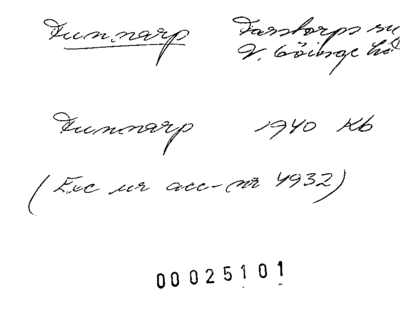 Tunnarp Farstorps
V. Göinge
Tunnarp 1940 Kb
(Exc ur acc-nr 4932)
00025101